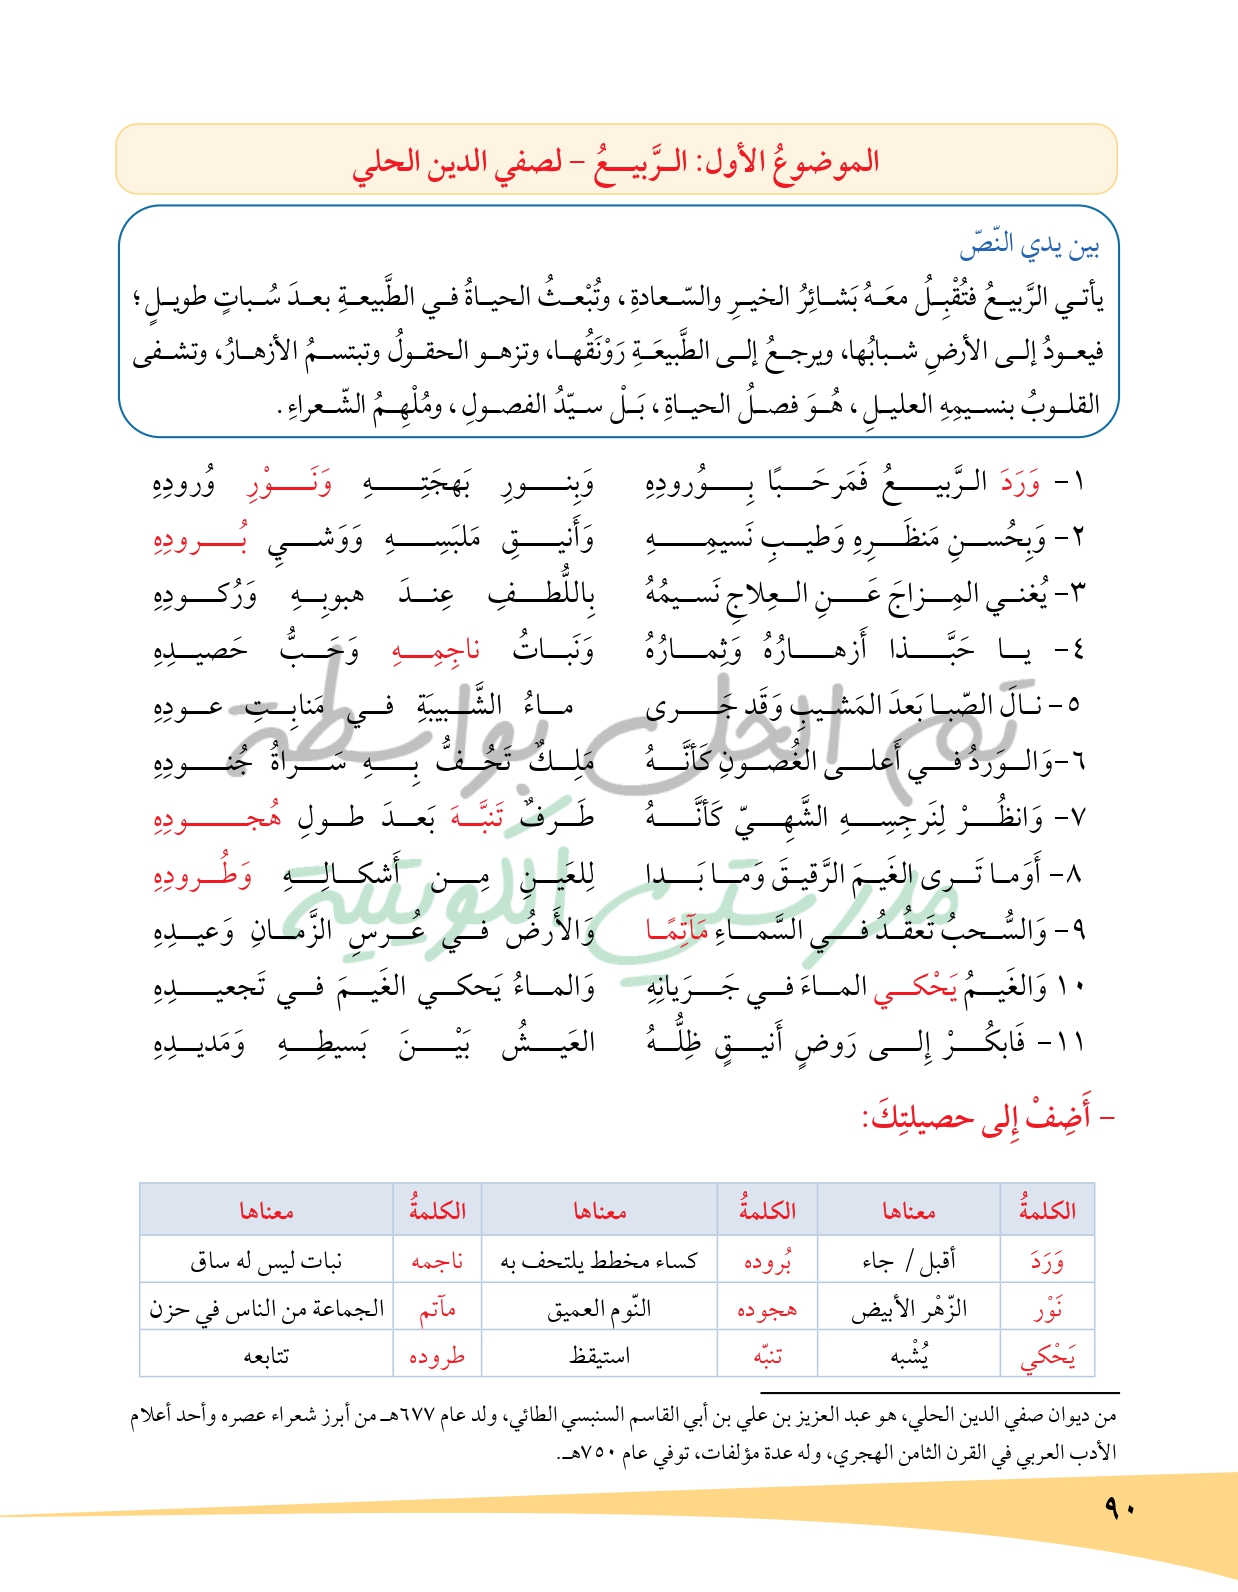 الموضوعُ الأول: الـرَّبيـــعُ – لصفي الدين الحلي
بين يدي النّصّ
يأتـي الرَّبيـعُ فتُقْبِـلُ معَـهُ بَشـائِرُ الخيـرِ والسّـعادةِ، وتُبْعـثُ الحيـاةُ فـي الطَّبيعـةِ بعـدَ سُـباتٍ طويـلٍ؛
فيعـودُ إلـى الأرضِ شـبابُها، ويرجـعُ إلـى الطَّبيعَـةِ رَوْنَقُهـا، وتزهـو الحقـولُ وتبتسـمُ الأزهـارُ، وتشـفى
القلـوبُ بنسـيمِهِ العليـلِ، هُـوَ فصـلُ الحيـاةِ، بَـلْ سـيّدُ الفصـولِ، ومُلْهِـمُ الشّـعراءِ.
١- وَرَدَ الـرَّبيـــعُ فَمَرحَـــبًا بِـــوُرودِهِ وَبِنـــورِ بَهجَتِـــهِ وَنَـــوْرِ وُرودِهِ
٢- وَبِحُسـنِ مَنظَـــرِهِ وَطيـبِ نَسيمِـــهِ وَأَنيـــقِ مَلبَسِـــهِ وَوَشـــيِ بُـــرودِهِ
٣- يُغنـي المِـزاجَ عَـــنِ الـعِلاجِ نَسـيمُهُ بِاللُّطـــفِ عِنـــدَ هبوبِـــهِ وَرُكـــودِهِ
٤- يـــا حَبَّـــذا أَزهـــارُهُ وَثِمـــارُهُ وَنَبـــاتُ ناجِمِـــهِ وَحَـــبُّ حَصيـدِهِ
٥- نـالَ الصّبـا بَعدَ المَشـيبِ وَقَد جَـــرى مـــاءُ الشَّـبيبَةِ فـــي مَنابِـتِ عـودِهِ
٦-وَالـوَردُ فـي أَعلـى الغُصـونِ كَأَنَّـــهُ مَلِـكٌ تَحُـفُّ بِـــهِ سَـــراةُ جُنـودِهِ
٧- وَانظُـــرْ لِنَرجِسِـــهِ الشَّهِـيّ كَأَنَّـــهُ طَـــرفٌ تَنبَّـــهَ بَعـدَ طـولِ هُجـــودِهِ
٨- أَوَمـا تَـرى الغَيـمَ الرَّقيـقَ وَمـا بَـــدا لِلعَيـــنِ مِـــن أَشكـالِـــهِ وَطُـرودِهِ
٩- وَالسُّـحبُ تَعقُـدُ فـــي السَّمـاءِ مَآتِمًـا وَالأَرضُ فـي عُـرسِ الزَّمـانِ وَعيـدِهِ
١٠ وَالغَيـمُ يَحْكـــي الماءَ فـي جَـرَيانِهِ وَالمـاءُ يَحكـي الغَيـمَ فـي تَجعيـــدِهِ
١١- فَابكُـــرْ إِلـــى رَوضٍ أَنيـــقٍ ظِلُّـــهُ العَيـــشُ بَيْـــنَ بَسيطِـــهِ وَمَديـدِهِ
– أَضِفْ إِلى حصيلتِكَ:
الكلمةُ معناها الكلمةُ معناها الكلمةُ معناها
وَرَدَ أقبل / جاء بُروده كساء مخطط يلتحف به ناجمه نبات ليس له ساق
نَوْر الزّهْر الأبيض هجوده النّوم العميق مآتم الجماعة من الناس في حزن
يَحْكي يُشْبه تنبّه استيقظ طروده تتابعه
من ديوان صفي الدين الحلي، هو عبد العزيز بن علي بن أبي القاسم السنبسي الطائي، ولد عام ٦٧٧هـ من أبرز شعراء عصره وأحد أعلام
الأدب العربي في القرن الثامن الهجري، وله عدة مؤلفات، توفي عام ٧٥٠هـ.
٩٠
تم الحل بواسطة
مدرستي الكويتية